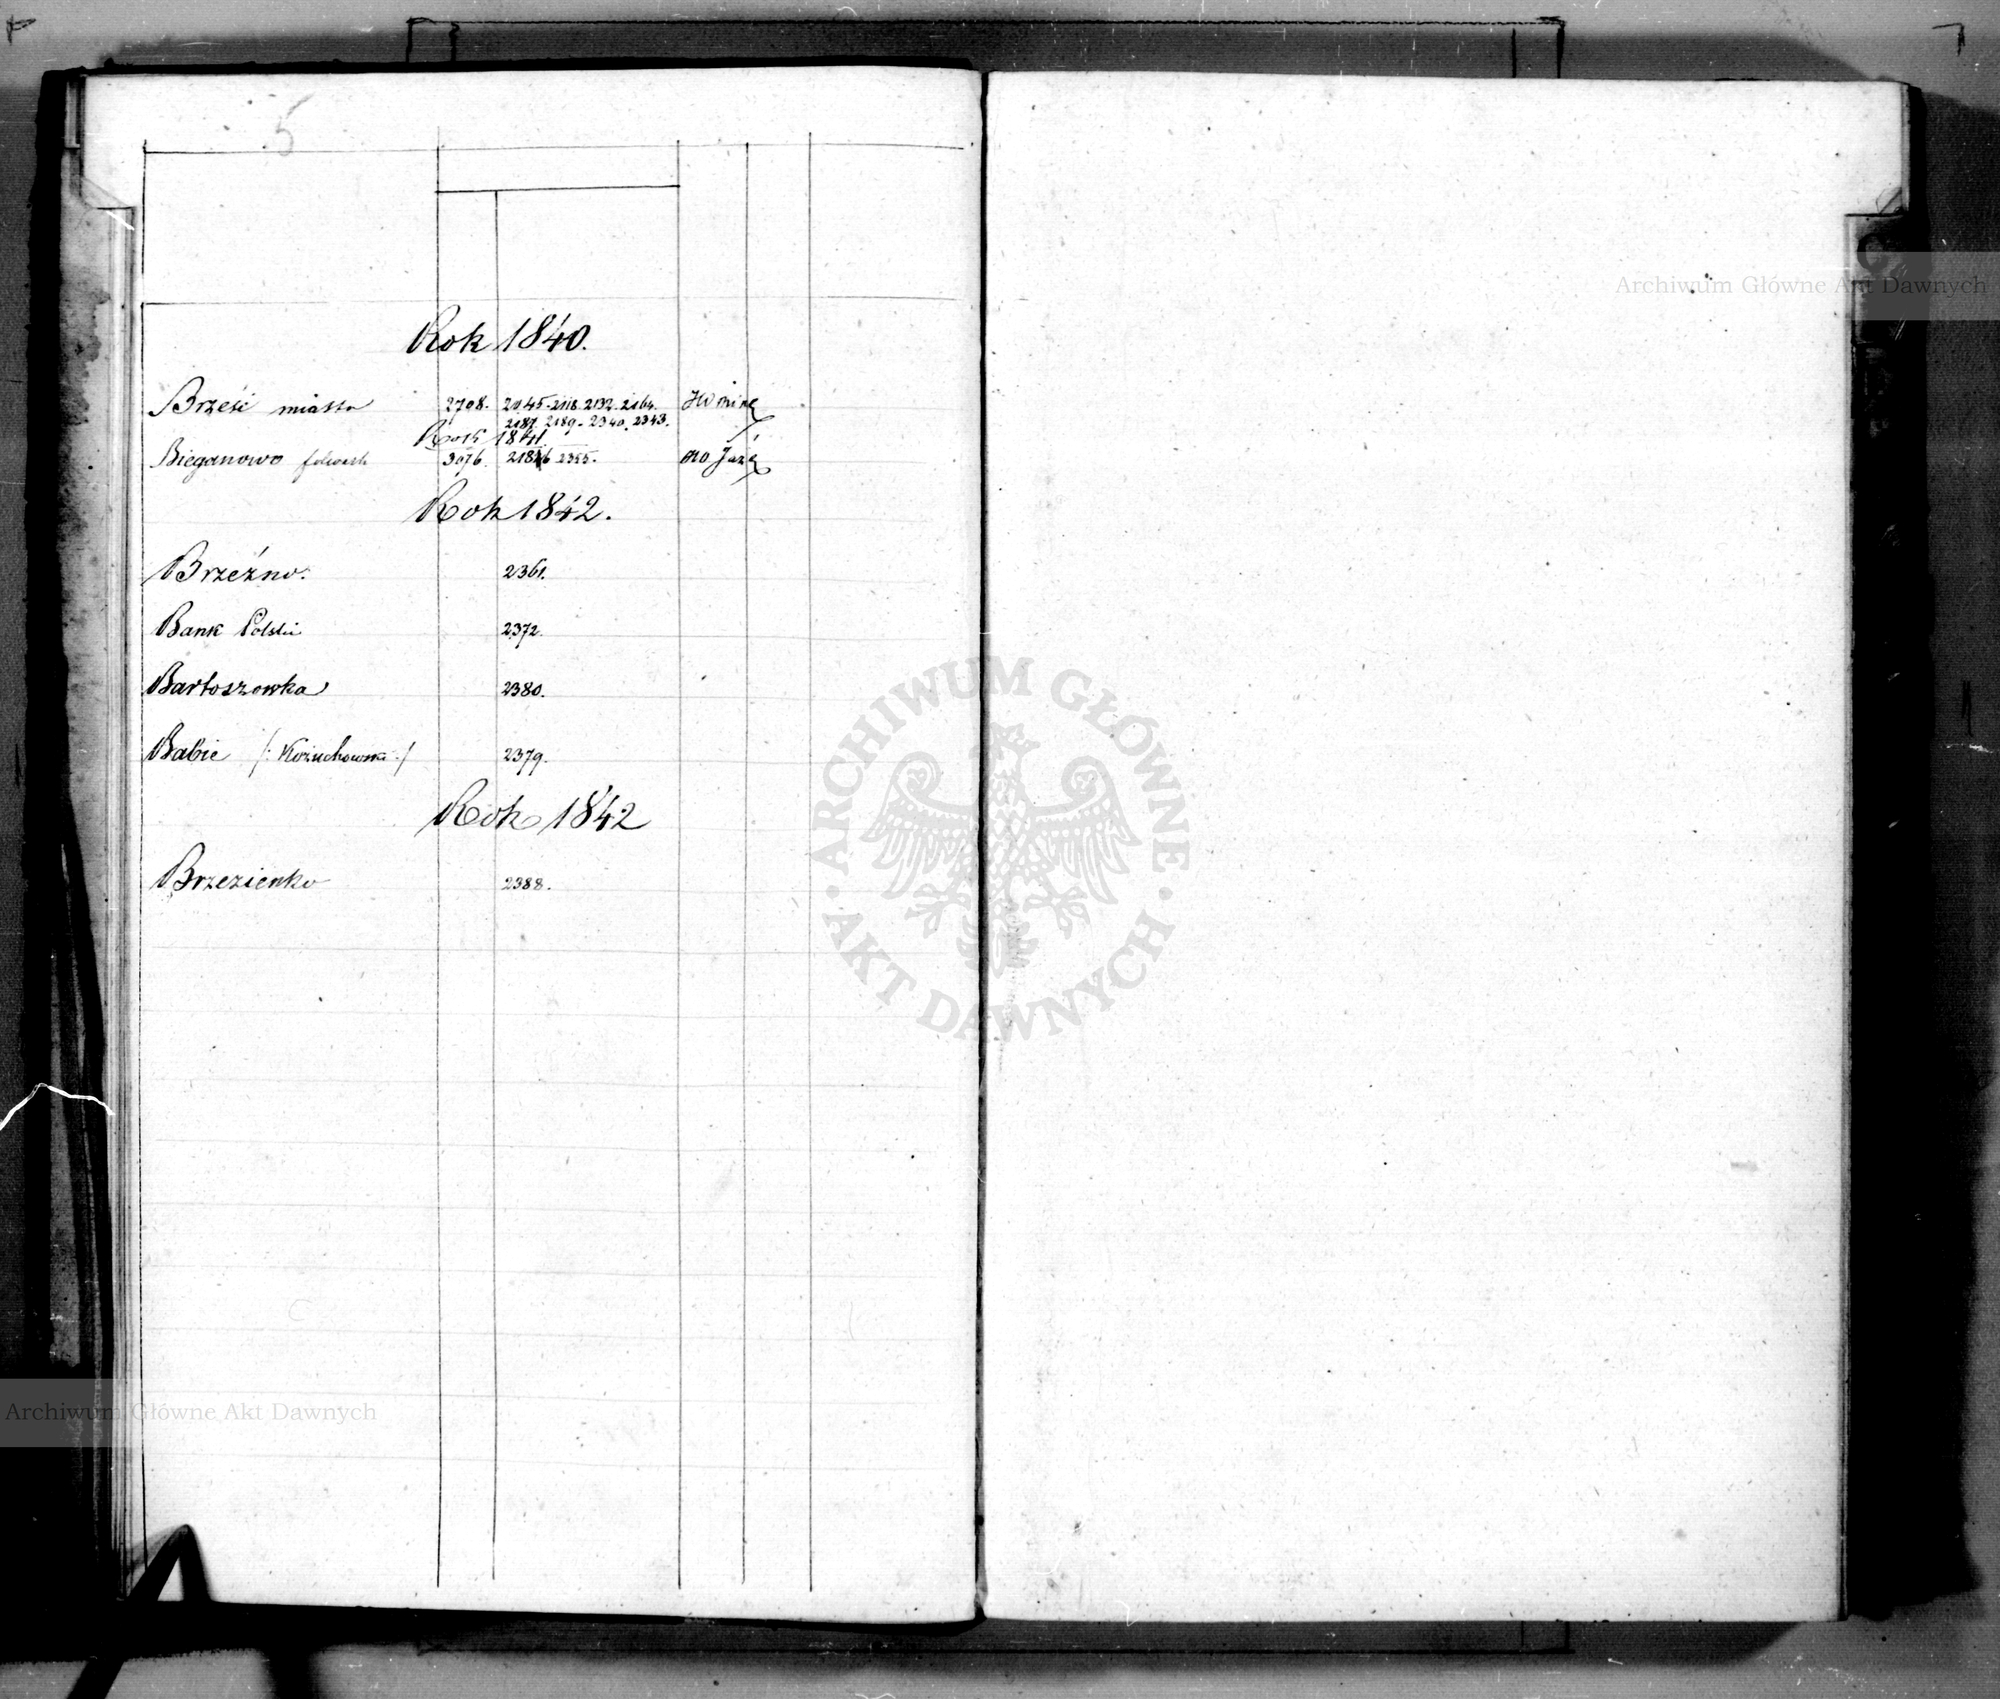 5
Rok 1840.
Brześć miasto 2708. 2045-2118.2132.2164.
2187. 2189-2340. 2343.
Rok 1841
Bieganowo folwark 3076. 2355.
Rok 1842.
Brzeźno. 2361.
Bank Polski 2372.
Bartoszowka 2380.
Babie /: Kożuchowski :/ 2379.
Rok 1842
Brzezienko 2388.
C
Archiwum Główne Akt Dawnych
ARCHIWUM GŁÓWNE
AKT DAWNYCH
Archiwum Główne Akt Dawnych